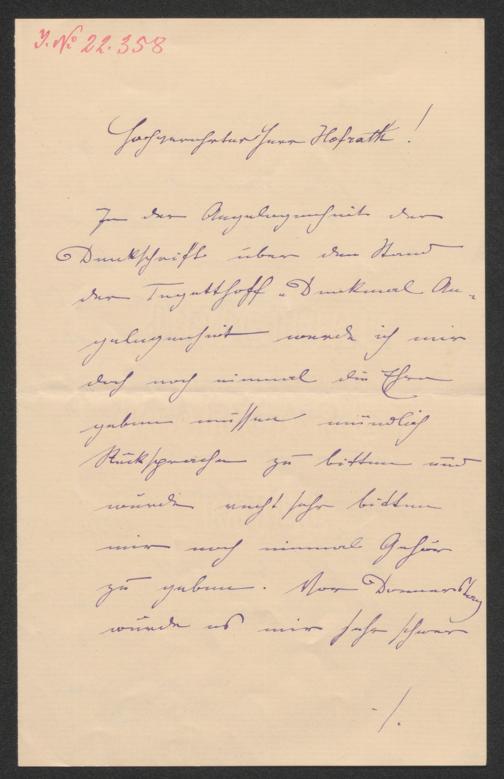 J. No 22.358
Hochverehrter Herr Hofrath!
In der Angelegenheit der
Denkschrift über den Stand
der Tegetthoff-Denkmal An-
gelegenheit werde ich mir
doch noch einmal die Ehre
geben müssen mündlich
Rücksprache zu bitten und
würde recht sehr bitten
mir noch einmal Gehör
zu geben. Vor Donnerstag
würde es mir sehr schwer
./.